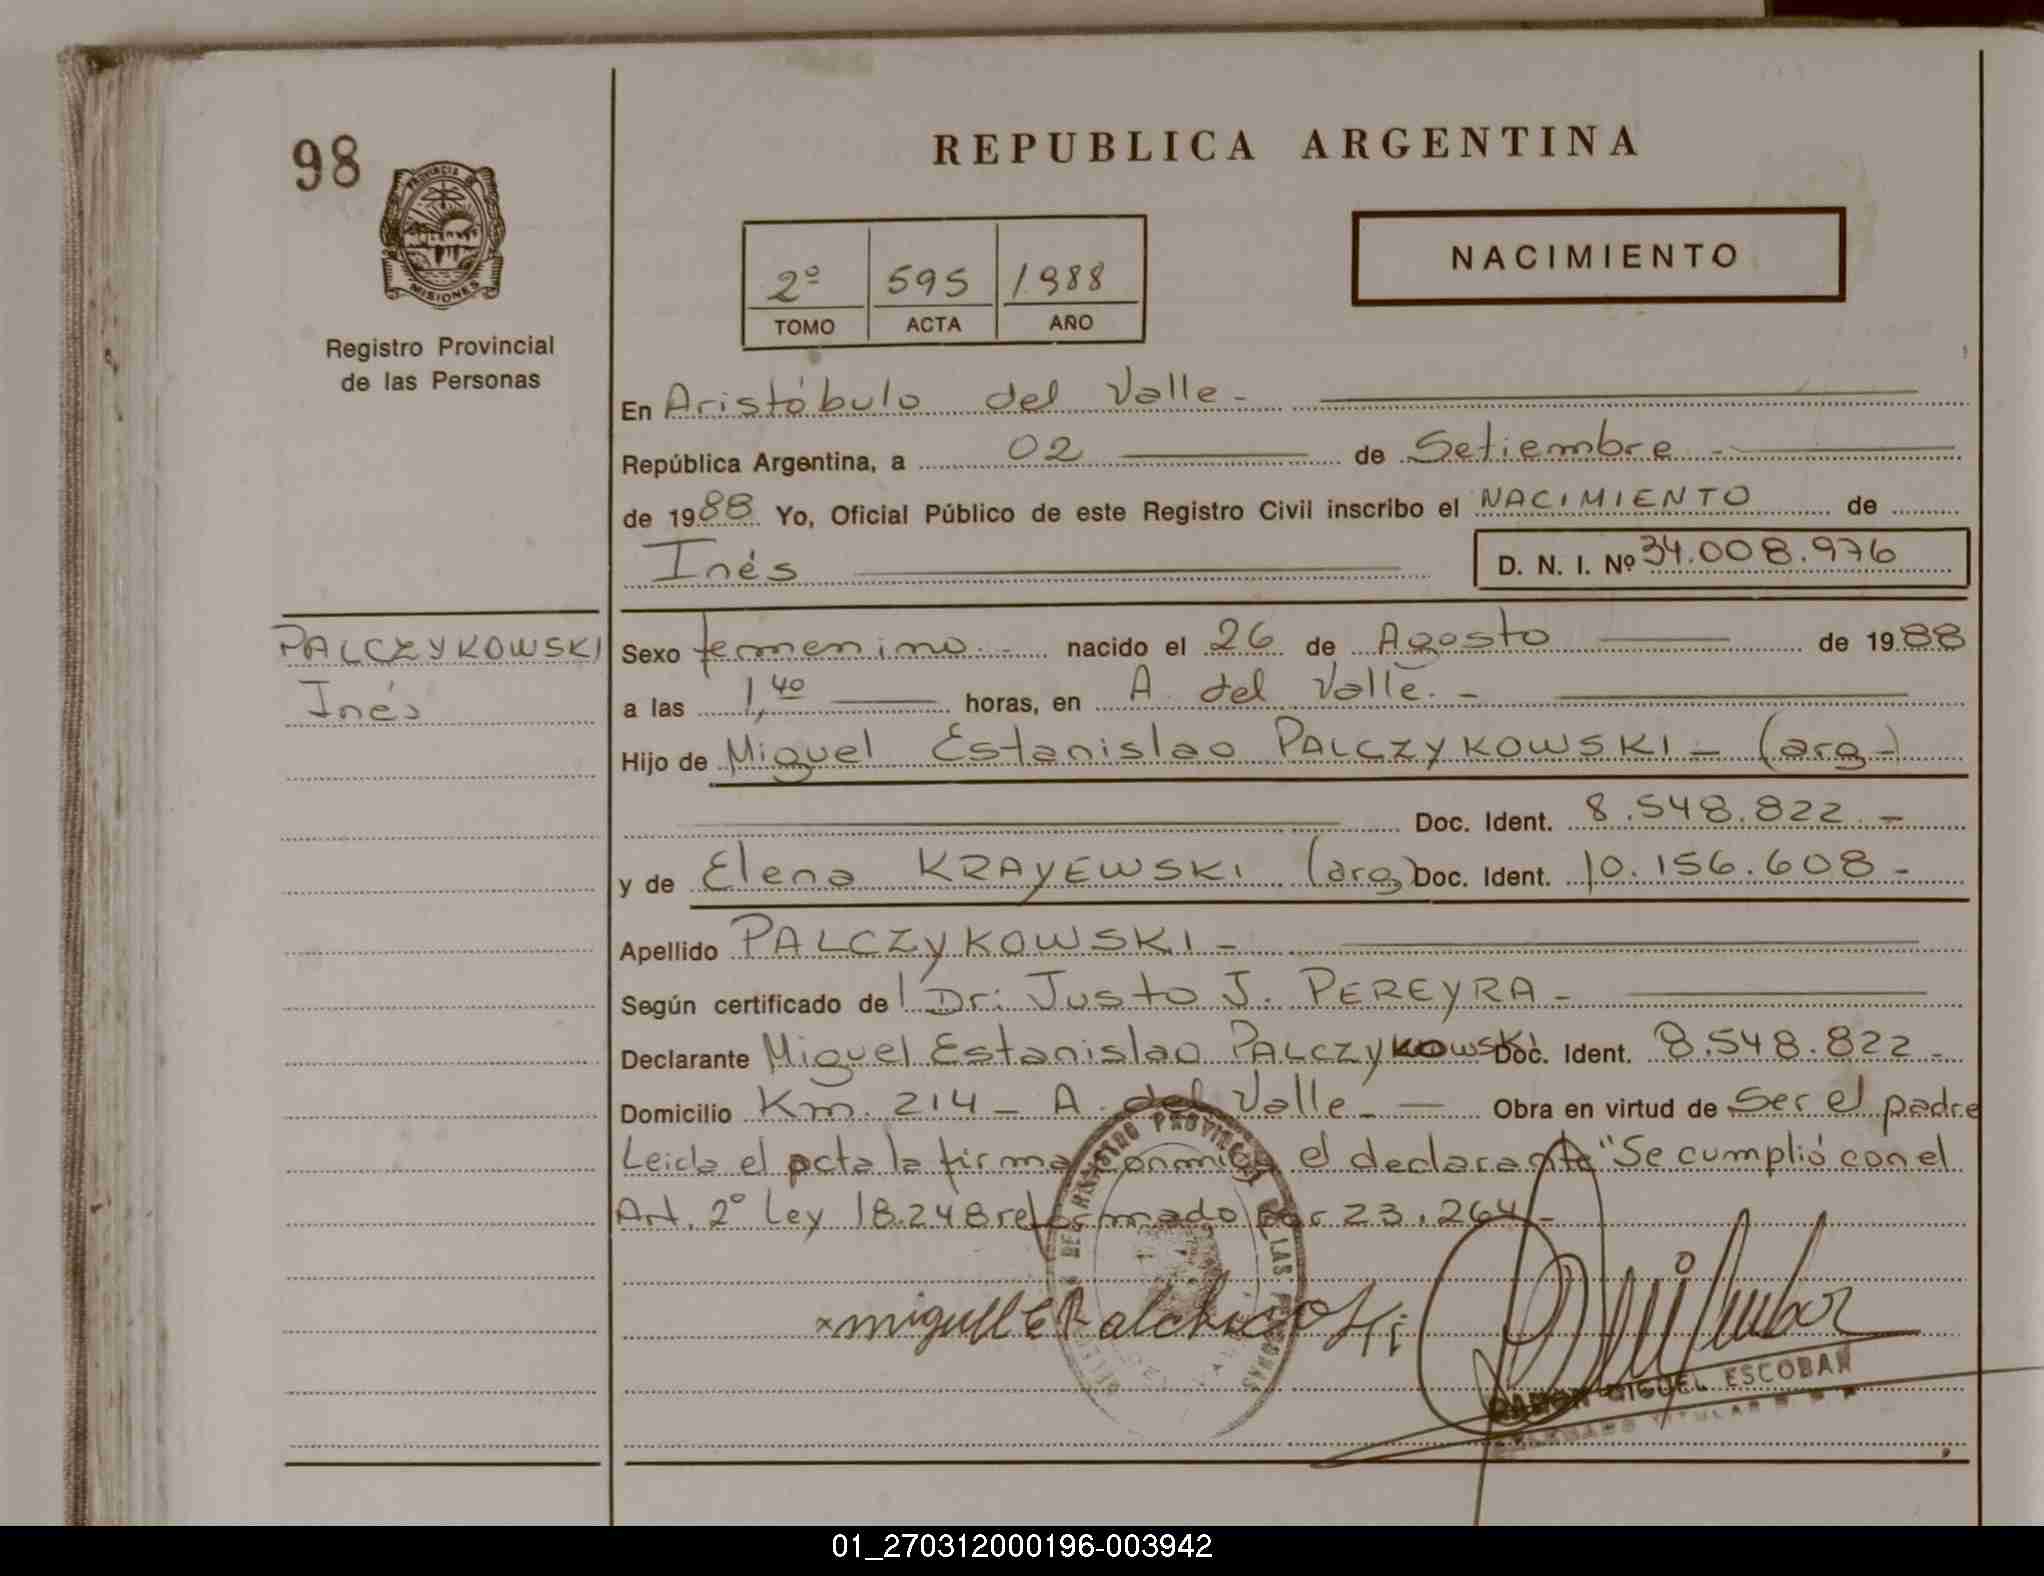 98
PROVINCIA DE
MISIONES
Registro Provincial
de las Personas
REPUBLICA ARGENTINA
2º 595 1988
TOMO ACTA AÑO
NACIMIENTO
En Aristóbulo del Valle -
República Argentina, a 02 de Setiembre -
de 1988 Yo, Oficial Público de este Registro Civil inscribo el NACIMIENTO de
Inés D. N. I. Nº 34.008.976
PALCZYKOWSKI
Inés
Sexo femenino. - nacido el 26 de Agosto de 1988
a las 1,40 horas, en A. del Valle. -
Hijo de Miguel Estanislao PALCZYKOWSKI - (arg-)
Doc. Ident. 8.548.822. -
y de Elena KRAYEWSKI (arg) Doc. Ident. 10.156.608 -
Apellido PALCZYKOWSKI -
Según certificado de Dr: Justo J. PEREYRA -
Declarante Miguel Estanislao PALCZYKOWSKI Doc. Ident. 8.548.822 -
Domicilio Km. 214 - A. del Valle - Obra en virtud de Ser el padre
Leida el acta la firma conmigo el declarante "Se cumplió con el
Art. 2º Ley 18.248 reformado por 23.264 -
REGISTRO PROVINCIAL DE LAS PERSONAS
x miguel E Palchicoski
RAMON MIGUEL ESCOBAR
DELEGADO TITULAR R. P. P.
01_270312000196-003942